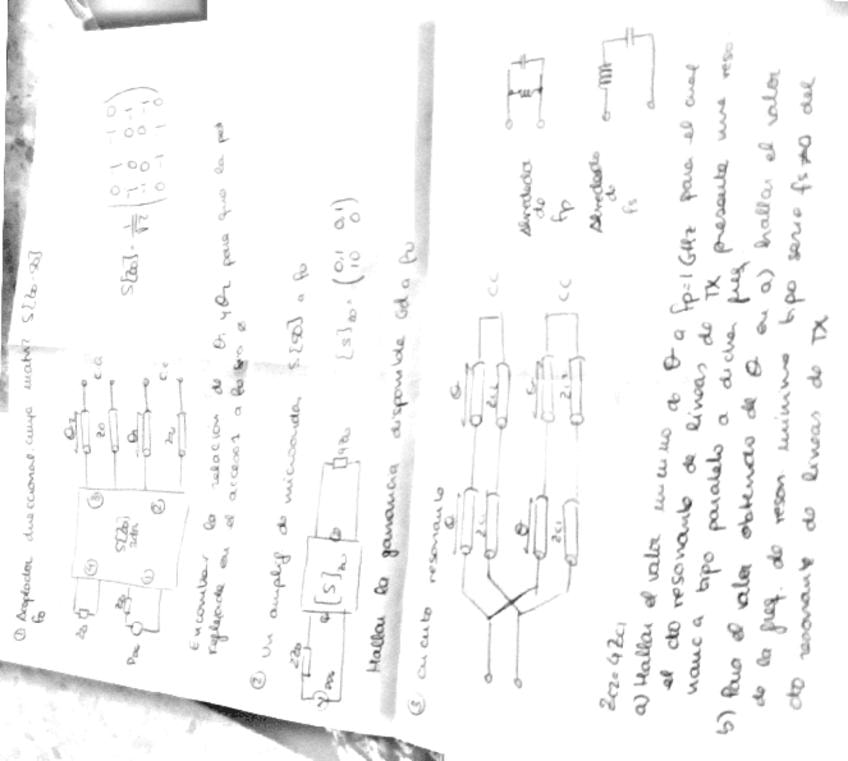 ① Acoplador direccional cuya matriz S[Z0=50]
f0
S[Z0] = 1/√2 (0 1 -1 0
1 0 0 -1
-1 0 0 1
0 -1 1 0)
④ ③ θ2 Z0 c.a
S[Z0]
Z0 ① ② θ1 Z0 c.c
Encontrar la relación de θ1 y θ2 para que la pot
reflejada en el acceso 1 a f0 sea 0
② Un amplif de microondas S[50] a f0
2Z0 [S]Z0 4Z0
[S]Z0 = (0,1 0,1
10 0)
Hallar la ganancia disponible Gd a f0
③ circuito resonante
θ Zc1 θ Zc2 CC
θ Zc1 θ Zc2 CC
Alrededor
de
fp
Alrededor
de
fs
Zc2=4Zc1
a) Hallar el valor mínimo de θ a fp=1GHz para el cual
el cto resonante de líneas de TX presente una reso
nancia tipo paralelo a dicha freq
b) Para el valor obtenido de θ en a) hallar el valor
de la freq. de reson mínima tipo serie fs≠0 del
cto resonante de líneas de TX